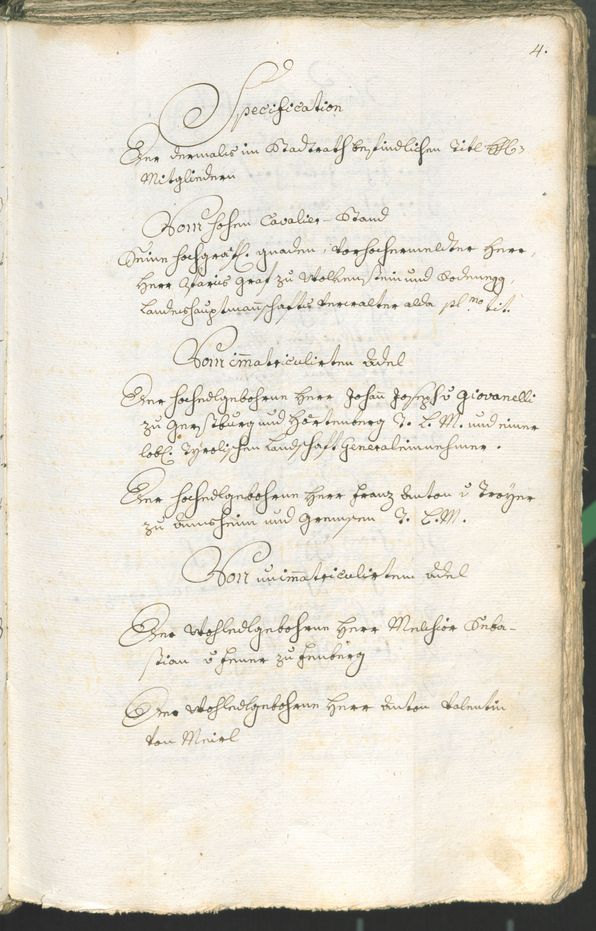 4.
Specification
Der dermalis im Stadtrath befindlichen Titl
Mitgliedern
Vom hohen Cavalier-Stand
Seine hochgräfl. gnaden, vorhochermeldter Herr,
Herr Graf zu Wolkenstein und Rodenegg,
Landeshauptmañschafts Verwalter alda pl.mo tit.
Vom im̄atriculirten Adel
Der hochedlgebohrne Herr Johañ Joseph v Giovanelli
zu Gerstburg und Hörtenberg T. L. M. und einer
lobl. Tyrolischen Landschaft Generaleinnehmer.
Der hochedlgebohrne Herr Franz Anton v Troyer
zu und T. L. M.
Von unim̄atriculirtem Adel
Der Wohledlgebohrne Herr Melchior Seba-
stian v Jenner zu
Der Wohledlgebohrne Herr Anton Valentin
von